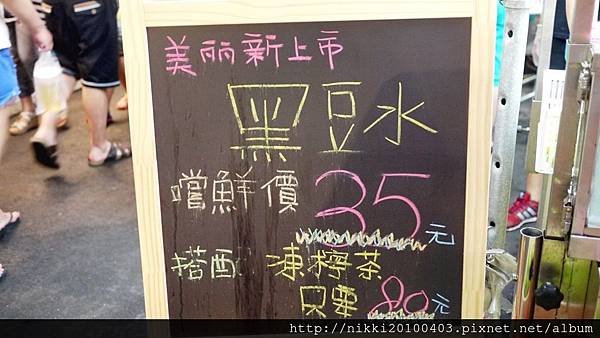 美丽新上市
黑豆水
嚐鮮價 35元
搭配 凍檸茶
只要 80元
http://nikki20100403.pixnet.net/album